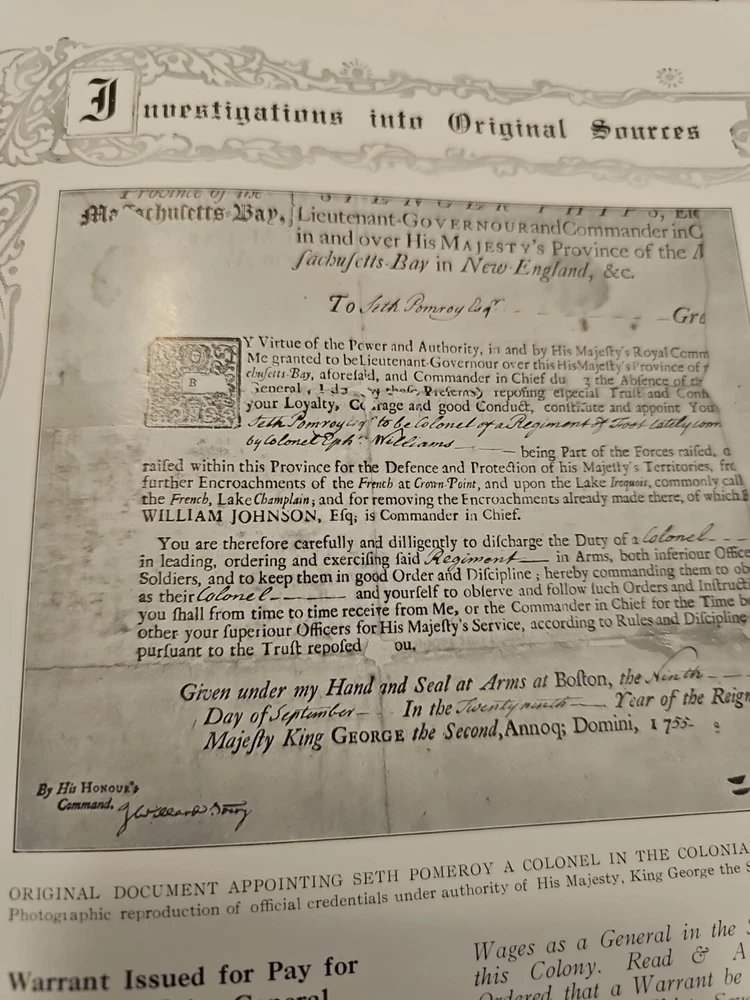 Investigations into Original Sources
Province of the
SPENCER PHIPS,
Massachusetts-Bay,
Lieutenant-GOVERNOUR and Commander in C
in and over His MAJESTY's Province of the
ſachuſetts-Bay in New-England, &c.
To Seth Pomroy Esqr. — Gre
BY Virtue of the Power and Authority, in and by His Majeſty's Royal Comm
Me granted to be Lieutenant-Governour over this His Majeſty's Province of
chuſetts-Bay, aforeſaid, and Commander in Chief du the Abſence of
General, I do (by theſe Preſents) repoſing eſpecial Truſt and Conf
your Loyalty, Courage and good Conduct, conſtitute and appoint You
Seth Pomroy Esqr to be Colonel of a Regiment of Foot lately com
by Colonel Ephm Williams —
being Part of the Forces raiſed,
raiſed within this Province for the Defence and Protection of his Majeſty's Territories, fro
further Encroachments of the French at Crown-Point, and upon the Lake Iroquois, commonly call
the French, Lake Champlain; and for removing the Encroachments already made there, of which
WILLIAM JOHNSON, Eſq; is Commander in Chief.
You are therefore carefully and dilligently to diſcharge the Duty of a Colonel - -
in leading, ordering and exerciſing ſaid Regiment — in Arms, both inferiour Office
Soldiers, and to keep them in good Order and Diſcipline; hereby commanding them to ob
as their Colonel — and yourſelf to obſerve and follow ſuch Orders and Inſtructi
you ſhall from time to time receive from Me, or the Commander in Chief for the Time b
other your ſuperiour Officers for His Majeſty's Service, according to Rules and Diſcipline
purſuant to the Truſt repoſed ou.
Given under my Hand and Seal at Arms at Boſton, the Ninth - -
Day of September - In the Twenty ninth — Year of the Reign
Majeſty King GEORGE the Second, Annoq; Domini, 1755.
By His HONOUR's
Command,
J Willard Secry
ORIGINAL DOCUMENT APPOINTING SETH POMEROY A COLONEL IN THE COLONIA
Photographic reproduction of official credentials under authority of His Majesty, King George the S
Warrant Issued for Pay for
General
Wages as a General in the S
this Colony. Read & A
Ordered that a Warrant be